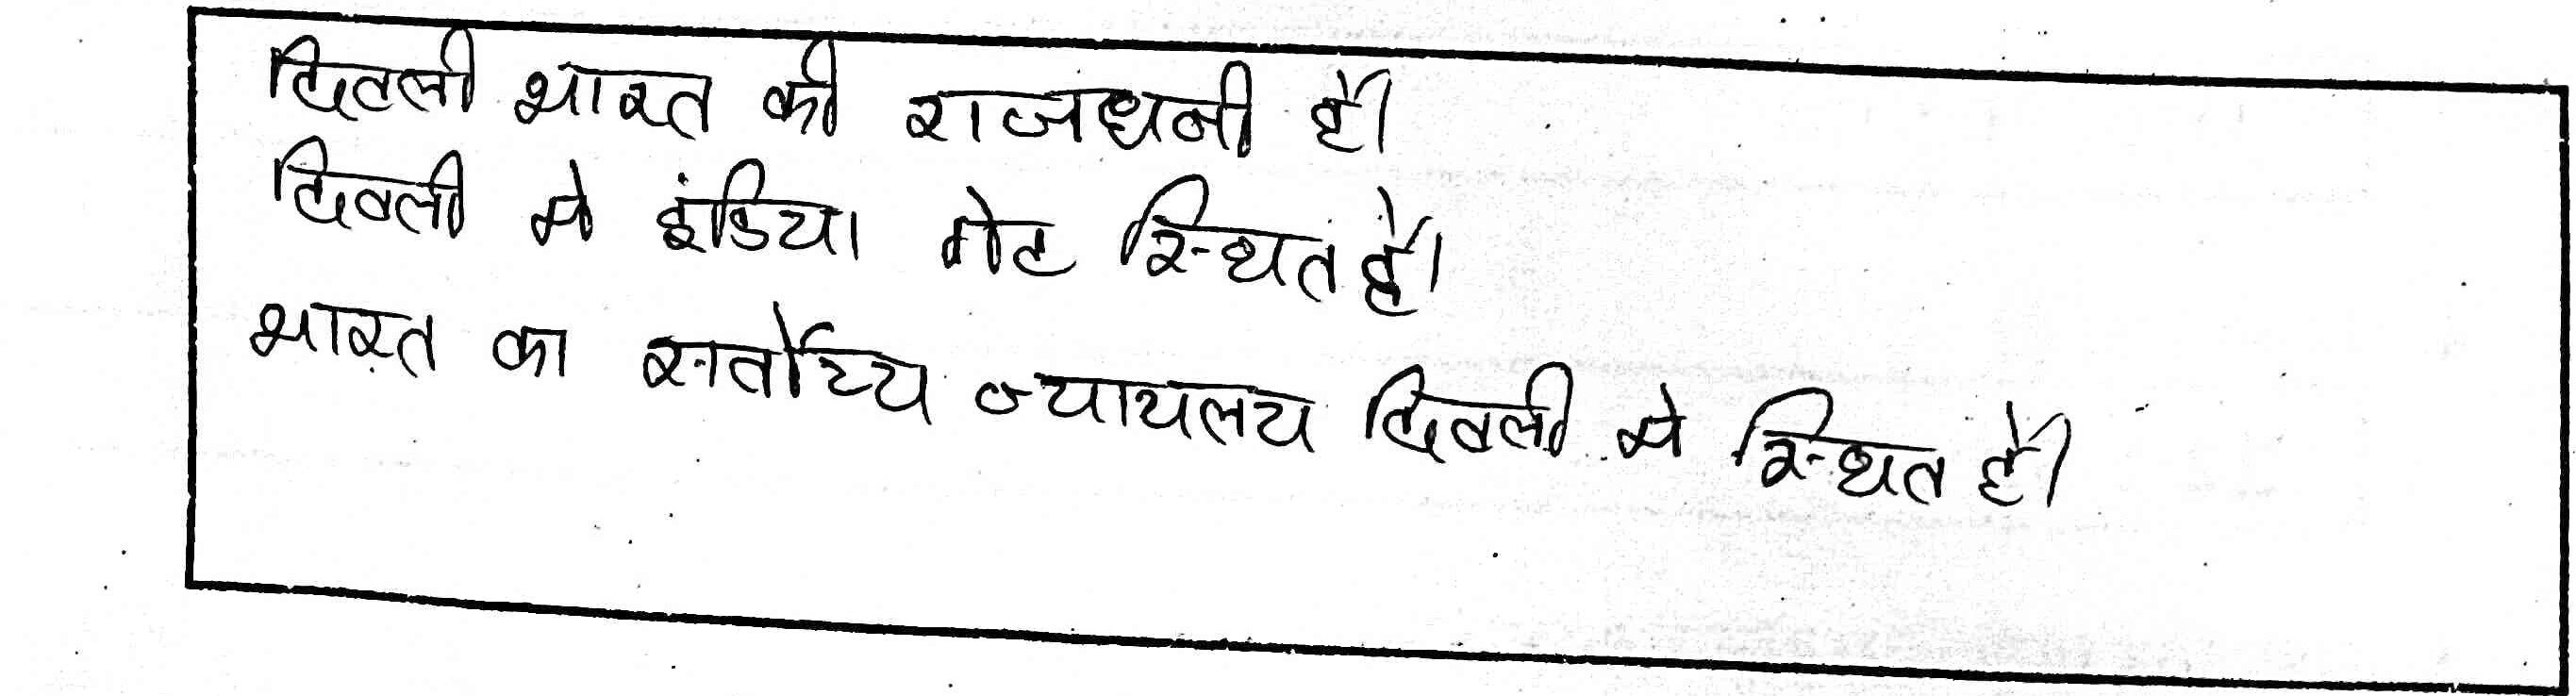 दिल्ली भारत की राजधनी है।
दिल्ली मे इंडिया गेट स्थित है।
भारत का सर्वोच्य न्यायलय दिल्ली मे स्थित है।